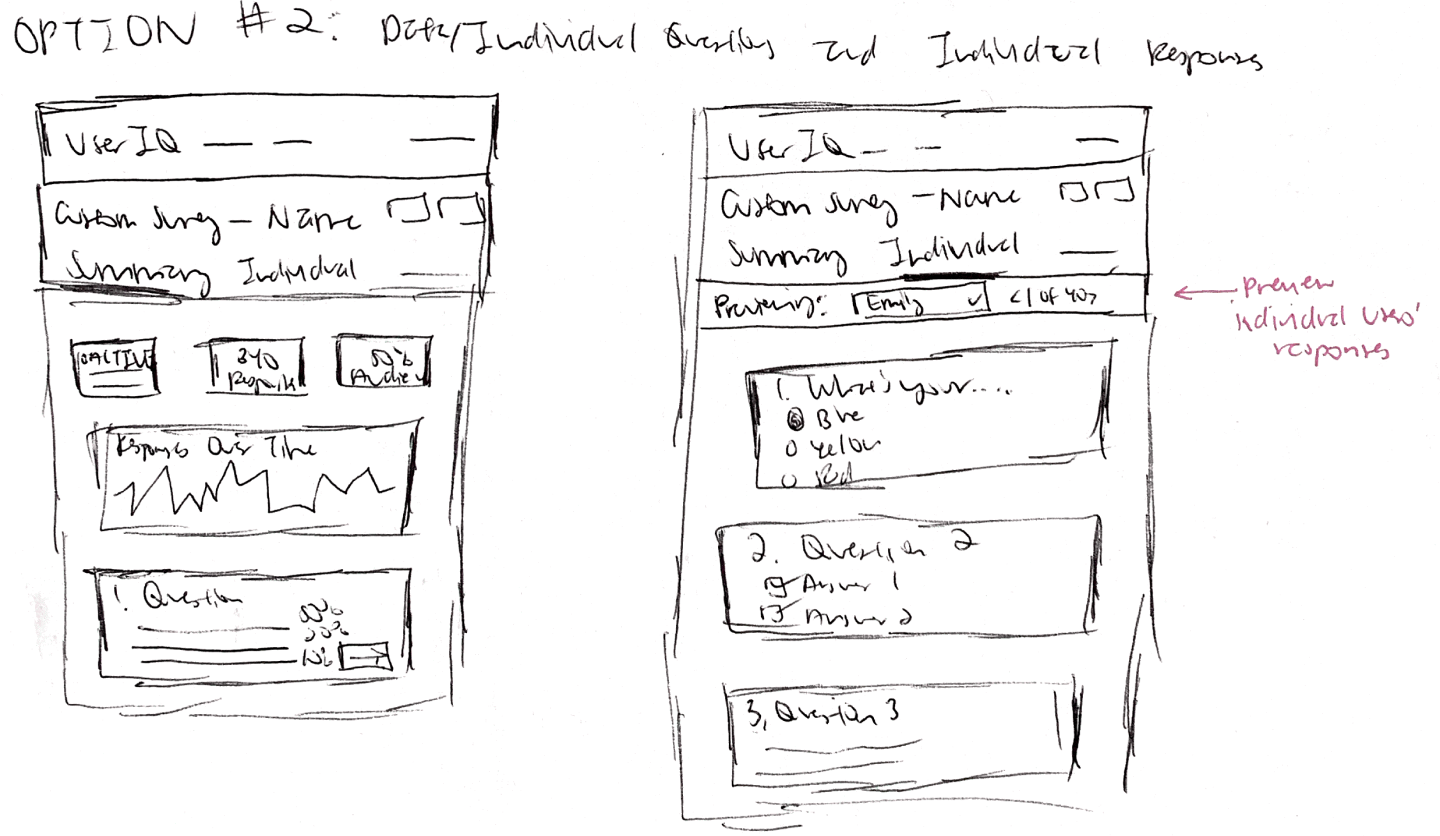 OPTION #2: Data/Individual Questions and Individual Responses
User IQ
Custom Survey - Name
Summary Individual
ACTIVE
340
50%
Responses Over Time
1. Question
10%
User IQ
Custom Survey - Name
Summary Individual
Previewing: Emily <1 of 40>
Preview
individual users'
responses
1. What's your....
Blue
Yellow
Red
2. Question 2
Answer 1
Answer 2
3. Question 3